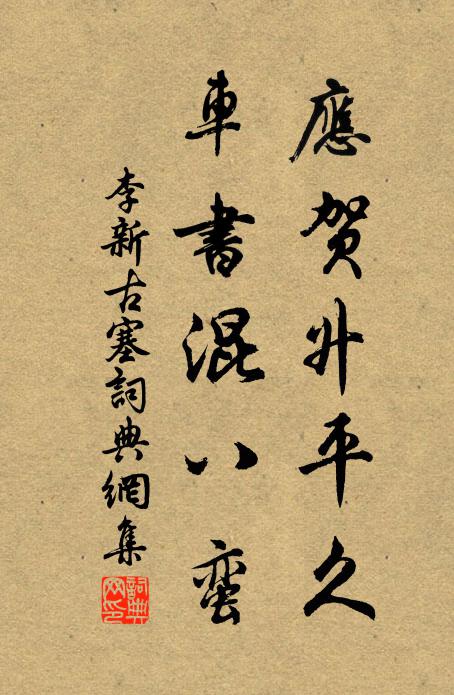 應賀升平久
車書混八蛮
李新古塞詞典網集
詞典網印